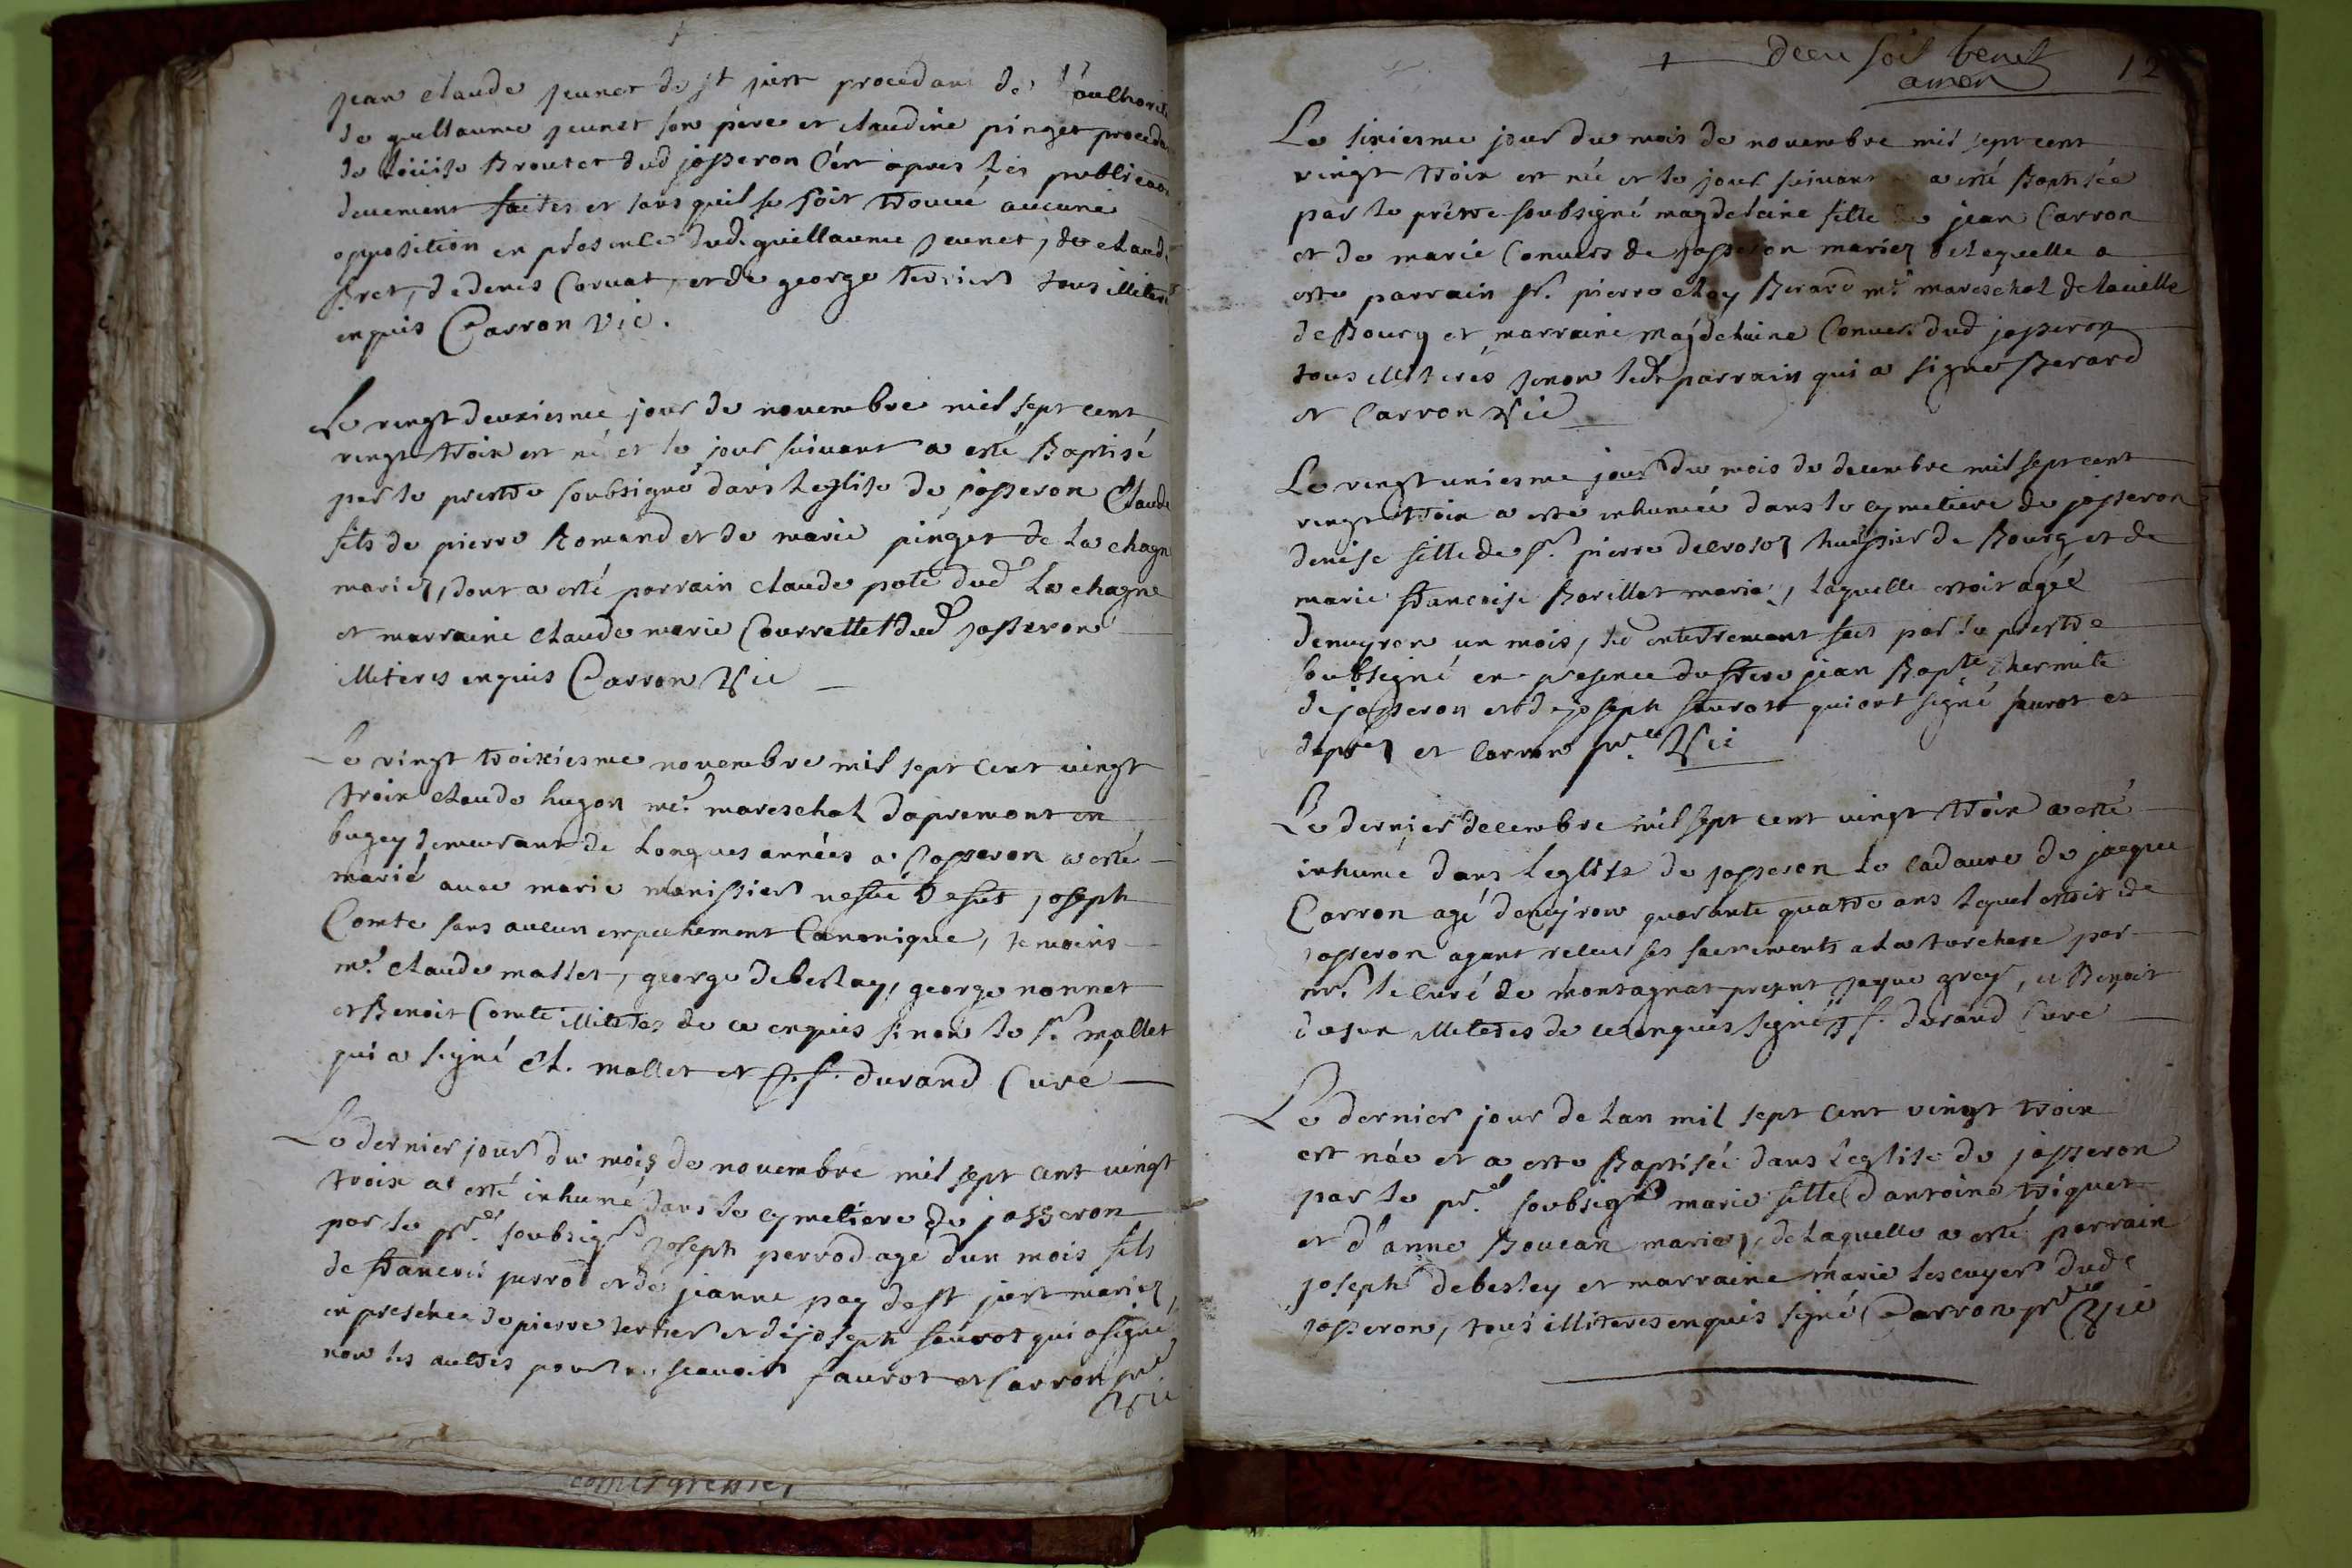 jean claude jeunet de st just procedant de l'authorité
de guillaume jeunet son père et claudine pinget procedan
de loüise Broutet dud josseron C'est apres les publicaon
deuement faites et sans quil se soit trouué aucune
opposition en présence dud. guillaume jeunet, de claude
Bret, de denis Coruat, et de george terrier tous illiteres
enquis Carron vic.
Le vingt deuxiesme jour de novembre mil sept cent
vingt trois est né et le jour suivant a esté Baptisé
par le prestre soubsigné dans leglise de josseron Claude
fils de pierre Romand et de marie pinget de la chagne
mariez, dont a esté parrain claude pote dud la chagne
et marraine claude marie Courrettet dud josseron
illiteres enquis Carron Vic
Le vingt troixiesme novembre mil sept cent vingt
trois claude hugon me. mareschal dapremont en
bugey demeurant de longues années a Josseron a esté
marié avec marie manissier vesue defut joseph
Comte sans aucun empechement Canonique, temoins
mr. claude mallet, george debeslay, george nonnet
et Benoit Comte illiteres de ce enquis sinon le sr. mallet
qui a signé Cl. mallet et J. f. durand Curé
Le dernier jour du mois de novembre mil sept cent vingt
trois a esté inhumé dans le cymetiere de josseron
par le pre. soubsigné joseph perrod agé dun mois fils
de francois perrod et de jeanne pay de st just mariez,
en presence de pierre terrier et de joseph saurot qui a signé
non les aultres pour ne scauoir saurot et Carron pre
Vic
comisgressier
dieu soit benit 12
amen
Le sixiesme jour du mois de novembre mil sept cent
vingt trois est née et le jour suivant a esté Baptisée
par le prestre soubsigné magdelaine fille de jean Carron
et de marie Convers de josseron mariez delaquelle a
esté parrain sr. pierre eloy Berard me. mareschal de la uille
de Bourg et marraine magdelaine Convers dud josseron
tous illiterés sinon led. parrain qui a signé Berard
et Carron Vic
Le vingt uniesme jour du mois de decembre mil sept cent
vingt trois a esté inhumée dans le cymetiere de josseron
denise fille de sr. pierre decrosoz huissier de Bourg et de
marie francoise Barillot mariez, laquelle estoit agée
denuyron un mois, led enterrement fait par le prestre
soubsigné en presence du frere jean Bapte. hermite
de josseron et de joseph saurot qui ont signé saurot et
et Carron pre. Vic
Le dernier decembre mil sept cent vingt trois a esté
inhumé dans leglise de josseron le cadaure de jacque
Carron agé denuyron quarante quatre ans lequel estoit de
josseron ayant receu ses sacrements a la torchere par
mr. le curé de montagnat present jaque grey, et Benoit
illiteres de ce enquis signé J f. durand Curé
Le dernier jour de lan mil sept cent vingt trois
est née et a esté Baptisée dans l'eglise de josseron
par le pre. soubsigné marie fille d'antoine triquet
et d'anne Boucan mariez, delaquelle a esté parrain
joseph debesley et marraine marie lescuyer dud.
josseron, tous illiteres enquis signé Carron pre Vic